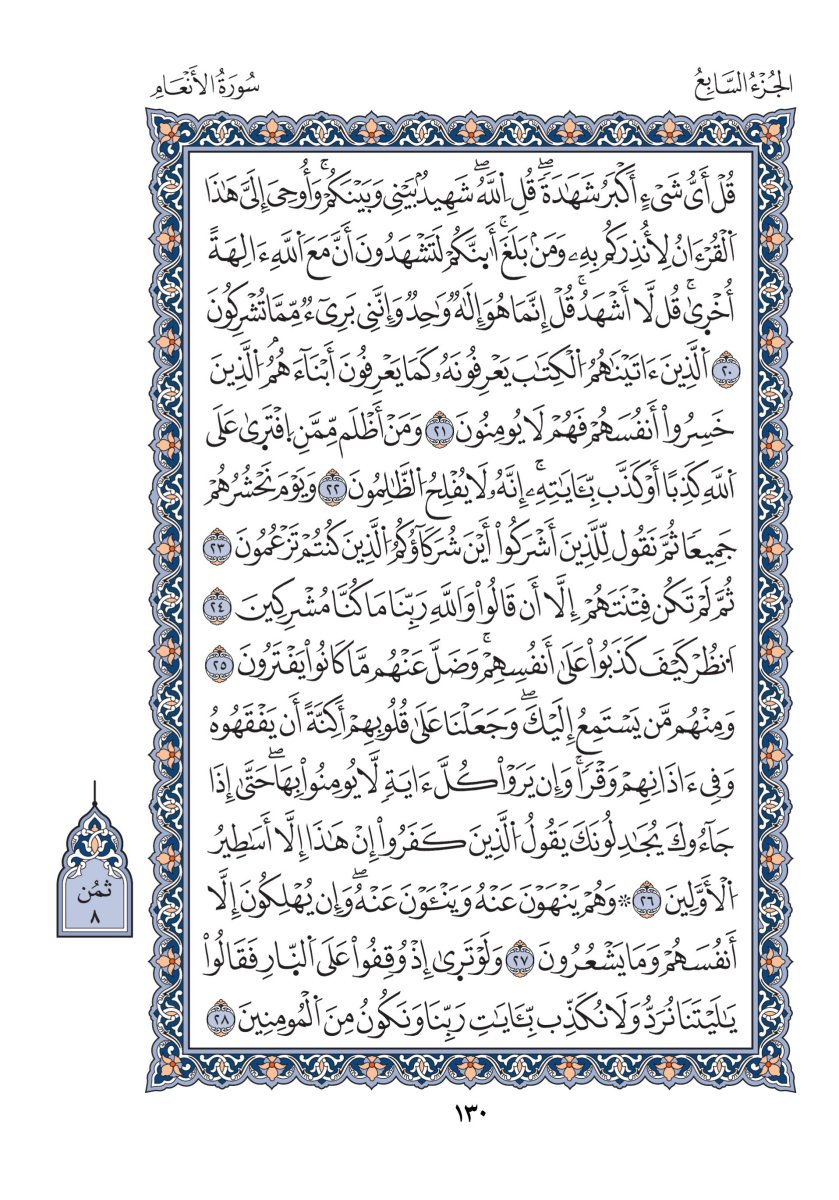 الجُزْءُ السَّابِعُ
سُورَةُ الأَنْعَامِ
قُلْ أَىُّ شَىْءٍ أَكْبَرُ شَهَٰدَةًۖ قُلِ اِ۬للَّهُۖ شَهِيدُۢ بَيْنِى وَبَيْنَكُمْۚ وَأُوحِىَ إِلَىَّ هَٰذَا
اَ۬لْقُرْءَانُ لِأُنذِرَكُم بِهِۦ وَمَنۢ بَلَغَۚ أَئِنَّكُمْ لَتَشْهَدُونَ أَنَّ مَعَ اَ۬للَّهِ ءَالِهَةً
أُخْرَىٰۚ قُل لَّا أَشْهَدُۚ قُلْ إِنَّمَا هُوَ إِلَٰهٌ وَٰحِدٌ وَإِنَّنِى بَرِىٓءٌ مِّمَّا تُشْرِكُونَ
٢٠ اَ۬لَّذِينَ ءَاتَيْنَٰهُمُ اُ۬لْكِتَٰبَ يَعْرِفُونَهُۥ كَمَا يَعْرِفُونَ أَبْنَآءَهُمُ اُ۬لَّذِينَ
خَسِرُواْ أَنفُسَهُمْ فَهُمْ لَا يُومِنُونَ ٢١ وَمَنْ أَظْلَم مِّمَّنِ اِ۪فْتَرَىٰ عَلَى
اَ۬للَّهِ كَذِبًا أَوْ كَذَّب بِّـَٔايَٰتِهِۦۚ إِنَّهُۥ لَا يُفْلِحُ اُ۬لظَّٰلِمُونَ ٢٢ وَيَوْمَ نَحْشُرُهُمْ
جَمِيعًا ثُمَّ نَقُول لِّلَّذِينَ أَشْرَكُواْ أَيْنَ شُرَكَآؤُكُمُ اُ۬لَّذِينَ كُنتُمْ تَزْعُمُونَ ٢٣
ثُمَّ لَمْ تَكُن فِتْنَتَهُمْ إِلَّا أَن قَالُواْ وَاللَّهِ رَبِّنَا مَا كُنَّا مُشْرِكِينَ ٢٤
اَ۟نظُرْ كَيْفَ كَذَبُواْ عَلَىٰ أَنفُسِهِمْۚ وَضَلَّ عَنْهُم مَّا كَانُواْ يَفْتَرُونَ ٢٥
وَمِنْهُم مَّن يَسْتَمِعُ إِلَيْكَۖ وَجَعَلْنَا عَلَىٰ قُلُوبِهِمْ أَكِنَّةً أَن يَفْقَهُوهُ
وَفِى ءَاذَانِهِمْ وَقْرًاۚ وَإِن يَرَوْاْ كُلَّ ءَايَةٍ لَّا يُومِنُواْ بِهَاۖ حَتَّىٰ إِذَا
جَآءُوكَ يُجَٰدِلُونَكَ يَقُولُ اُ۬لَّذِينَ كَفَرُواْ إِنْ هَٰذَا إِلَّا أَسَٰطِيرُ
اُ۬لْأَوَّلِينَ ٢٦ ۞ وَهُمْ يَنْهَوْنَ عَنْهُ وَيَنْـَٔوْنَ عَنْهُۖ وَإِن يُهْلِكُونَ إِلَّا
أَنفُسَهُمْ وَمَا يَشْعُرُونَ ٢٧ وَلَوْ تَرَىٰ إِذْ وُقِفُواْ عَلَى اَ۬لنّ۪ارِ فَقَالُواْ
يَٰلَيْتَنَا نُرَدُّ وَلَا نُكَذِّب بِّـَٔايَٰتِ رَبِّنَا وَنَكُونُ مِنَ اَ۬لْمُومِنِينَ ٢٨
ثُمُن
٨
١٣٠